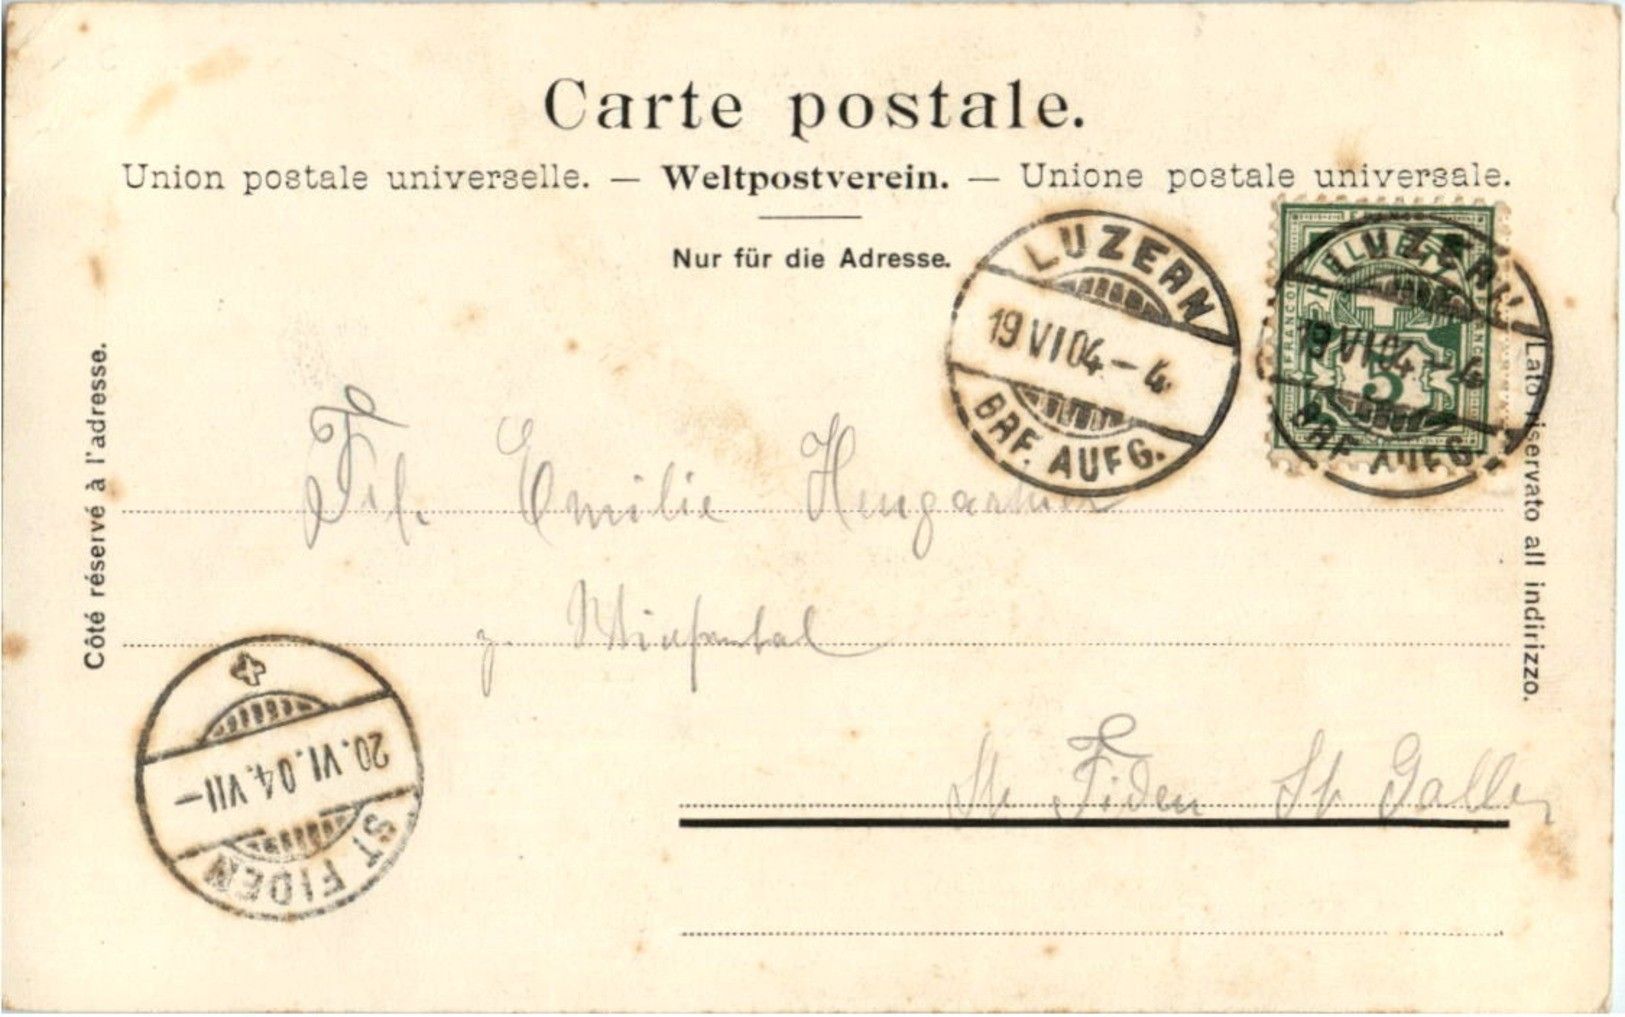 Carte postale.
Union postale universelle. — Weltpostverein. — Unione postale universale.
Nur für die Adresse.
LUZERN
19 VI 04 – 4
BRF. AUFG.
HELVETIA
FRANCO
5
LUZERN
19 VI 04 – 4
BRF. AUFG.
Côté réservé à l'adresse.
Lato riservato all indirizzo.
Frl. Emilie
z.
St. Fiden St. Gallen
20. VI. 04. VII –
ST FIDEN